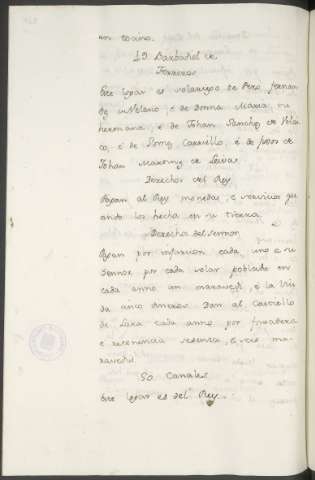 un tocino.
49 Barbadiel de
Ferreros
Este logar es solariego de Pero Fernan
dez de Velasco, é de Donna Maria, su
hermana, é de Johan Sanchez de Velas
co, é de Gomez Carriello, é de fijos de
Johan Martinez de Leiva.
Derechos del Rey
Pagan al Rey monedas, é servicios qu
ando los hecha en su tierra.
Derechos del Sennor
Pagan por infurcion cada uno á su
Sennor por cada solar poblado en
cada anno un maravedi, é la
da cinco dineros. Dan al Castiello
de Lara cada anno por fonsadera
é sesenta, é seis ma
ravedis.
50 Canales
Este logar es del Rey.